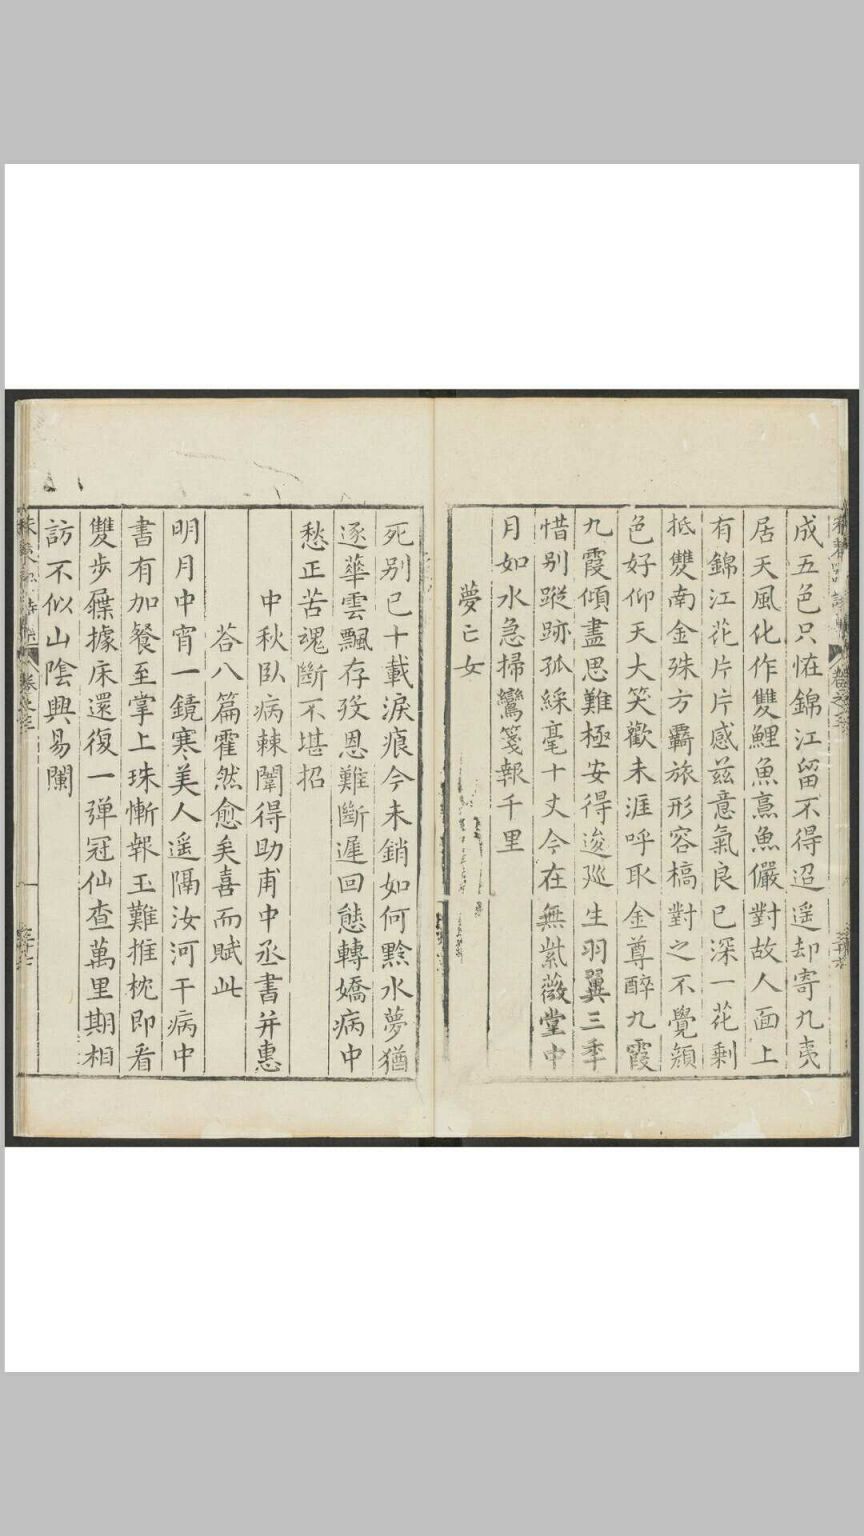 成五色只恠錦江留不得迢遥却寄九夷
居天風化作雙鯉魚烹魚儼對故人面上
有錦江花片片感茲意氣良已深一花剩
抵雙南金殊方覉旅形容槁對之不覺顔
色好仰天大笑歡未涯呼取金尊醉九霞
九霞傾盡思難極安得逡廵生羽翼三季
惜别蹤跡孤綵毫十丈今在無紫薇堂中
月如水急掃鸞箋報千里
夢亡女
死别已十載淚痕今未銷如何黔水夢猶
逐華雲飄存殁恩難斷遲回態轉嬌病中
愁正苦魂斷不堪招
中秋臥病棘闈得助甫中丞書并惠
荅八篇霍然愈矣喜而賦此
明月中宵一鏡寒美人遥隔汝河干病中
書有加餐至掌上珠慚報玉難推枕即看
雙步屧據床還復一弹冠仙查萬里期相
訪不似山陰興易闌
卷之三